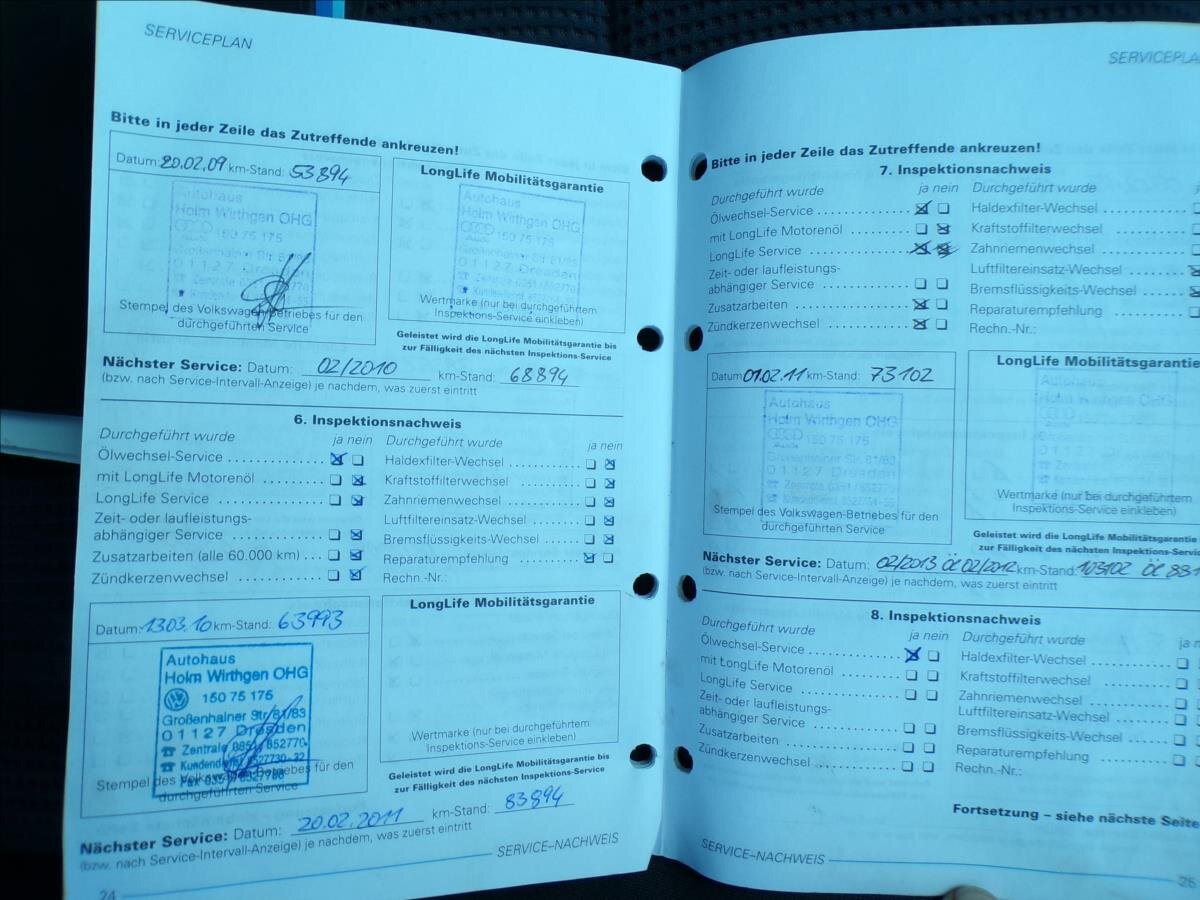 SERVICEPLAN
Bitte in jeder Zeile das Zutreffende ankreuzen!
Datum: 20.02.09 km-Stand: 53894
Autohaus
Holm Wirthgen OHG
150 75 175
Großenhainer Str. 81/83
01127 Dresden
Stempel des Volkswagen-Betriebes für den
durchgeführten Service
LongLife Mobilitätsgarantie
Autohaus
Holm Wirthgen OHG
150 75 175
01127 Dresden
Wertmarke (nur bei durchgeführtem
Inspektions-Service einkleben)
Geleistet wird die LongLife Mobilitätsgarantie bis
zur Fälligkeit des nächsten Inspektions-Service
Nächster Service: Datum: 02/2010 km-Stand: 68894
(bzw. nach Service-Intervall-Anzeige) je nachdem, was zuerst eintritt
6. Inspektionsnachweis
Durchgeführt wurde ja nein
Ölwechsel-Service
mit LongLife Motorenöl
LongLife Service
Zeit- oder laufleistungs-
abhängiger Service
Zusatzarbeiten (alle 60.000 km)
Zündkerzenwechsel
Durchgeführt wurde ja nein
Haldexfilter-Wechsel
Kraftstoffilterwechsel
Zahnriemenwechsel
Luftfiltereinsatz-Wechsel
Bremsflüssigkeits-Wechsel
Reparaturempfehlung
Rechn.-Nr.:
Datum: 13.03.10 km-Stand: 63993
Autohaus
Holm Wirthgen OHG
150 75 175
Großenhainer Str. 81/83
01127 Dresden
Zentrale 0351/852770
Kundendienst 8527730-32
Fax 0351/8527788
Stempel des Volkswagen-Betriebes für den
durchgeführten Service
LongLife Mobilitätsgarantie
Wertmarke (nur bei durchgeführtem
Inspektions-Service einkleben)
Geleistet wird die LongLife Mobilitätsgarantie bis
zur Fälligkeit des nächsten Inspektions-Service
Nächster Service: Datum: 20.02.2011 km-Stand: 83894
(bzw. nach Service-Intervall-Anzeige) je nachdem, was zuerst eintritt
SERVICE–NACHWEIS
24
SERVICEPLA
Bitte in jeder Zeile das Zutreffende ankreuzen!
7. Inspektionsnachweis
Durchgeführt wurde ja nein
Ölwechsel-Service
mit LongLife Motorenöl
LongLife Service
Zeit- oder laufleistungs-
abhängiger Service
Zusatzarbeiten
Zündkerzenwechsel
Durchgeführt wurde
Haldexfilter-Wechsel
Kraftstoffilterwechsel
Zahnriemenwechsel
Luftfiltereinsatz-Wechsel
Bremsflüssigkeits-Wechsel
Reparaturempfehlung
Rechn.-Nr.:
Datum: 01.02.11 km-Stand: 73102
Autohaus
Holm Wirthgen OHG
150 75 175
Großenhainer Str. 81/83
01127 Dresden
Stempel des Volkswagen-Betriebes für den
durchgeführten Service
LongLife Mobilitätsgarantie
Wertmarke (nur bei durchgeführtem
Inspektions-Service einkleben)
Geleistet wird die LongLife Mobilitätsgarantie
zur Fälligkeit des nächsten Inspektions-Servic
Nächster Service: Datum: 02/2013 ÖL 02/2012 km-Stand: 103102 ÖL 881
(bzw. nach Service-Intervall-Anzeige) je nachdem, was zuerst eintritt
8. Inspektionsnachweis
Durchgeführt wurde ja nein
Ölwechsel-Service
mit LongLife Motorenöl
LongLife Service
Zeit- oder laufleistungs-
abhängiger Service
Zusatzarbeiten
Zündkerzenwechsel
Durchgeführt wurde
Haldexfilter-Wechsel
Kraftstoffilterwechsel
Zahnriemenwechsel
Luftfiltereinsatz-Wechsel
Bremsflüssigkeits-Wechsel
Reparaturempfehlung
Rechn.-Nr.:
Fortsetzung – siehe nächste Seite
SERVICE–NACHWEIS
25